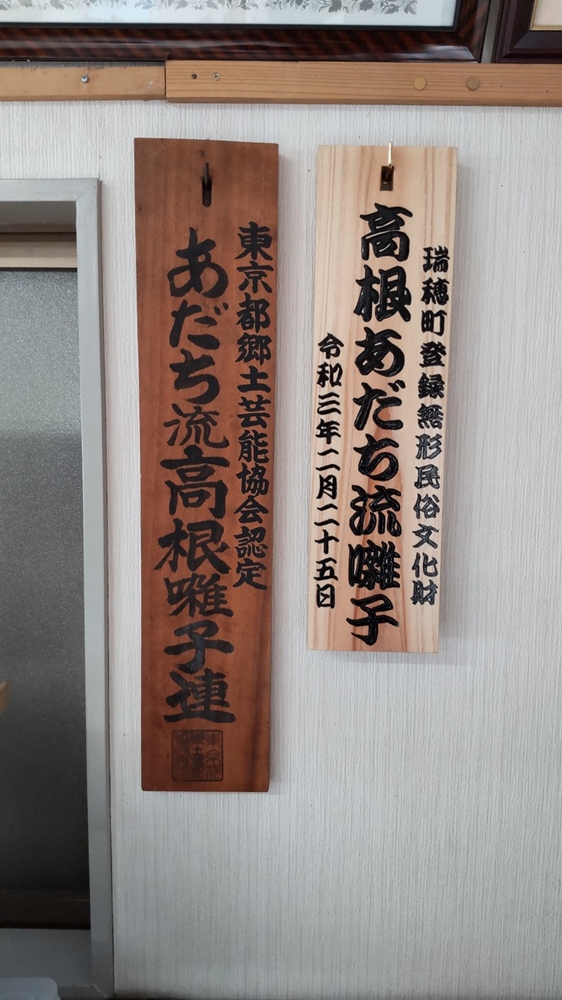 瑞穂町登録無形民俗文化財
高根あだち流囃子
令和三年二月二十五日
東京都郷土芸能協会認定
あだち流高根囃子連